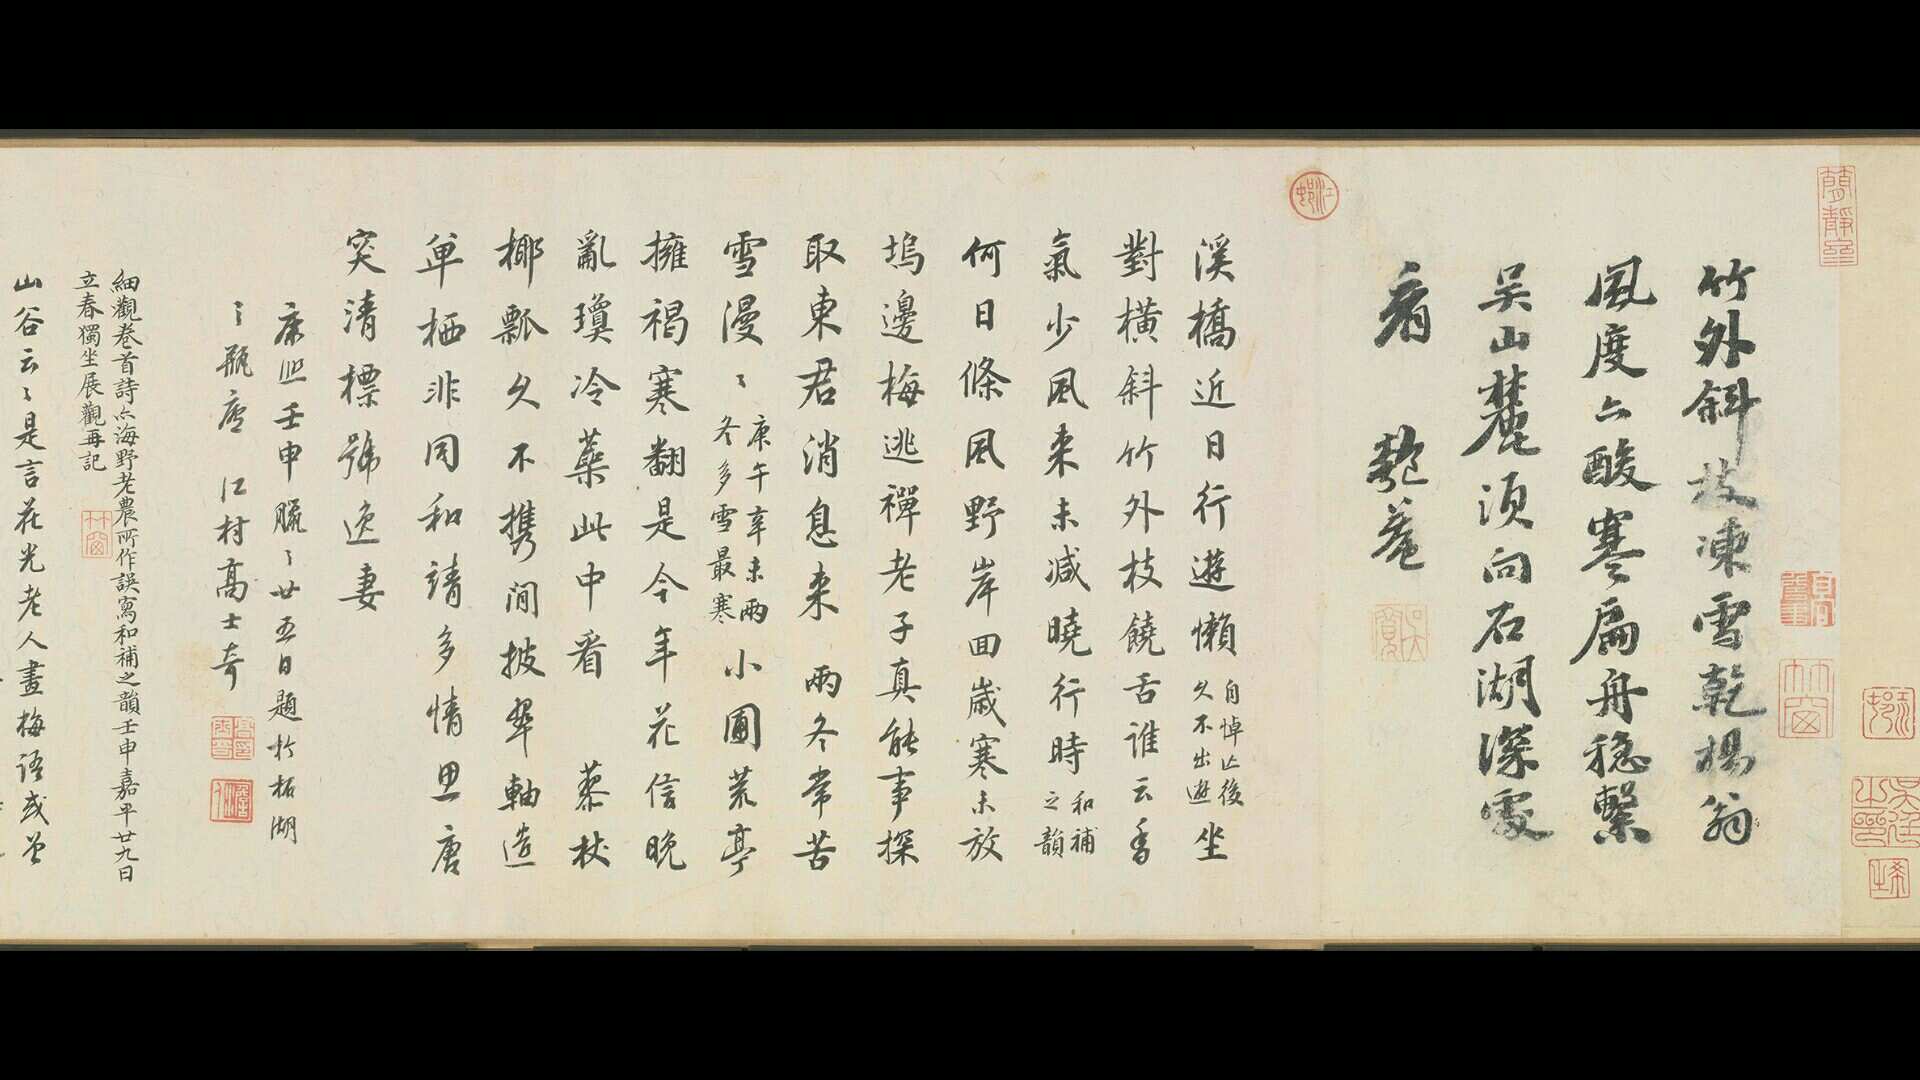 竹外斜枝凍雪乾楊翁
風度亦酸寒扁舟穩繫
吳山麓須向石湖深處
看 匏菴
溪橋近日行遊懶自悼亡後久不出遊坐
對橫斜竹外枝饒舌誰云香
氣少風來未減曉行時和補之韻
何日條風野岸回歲寒未放
塢邊梅逃禪老子真能事探
取東君消息來 兩冬常苦
雪漫〻庚午辛未兩冬多雪最寒小圃荒亭
擁褐寒翻是今年花信晚
亂瓊冷蘂此中看 藜杖
椰瓢久不攜澗披翠軸造
單栖非同和靖多情思唐
突清標號逸妻
康熙壬申臘〻廿五日題於柘湖
〻瓶廬 江村高士奇
細觀卷首詩亦海野老農所作誤寫和補之韻壬申嘉平廿九日
立春獨坐展觀再記
山谷云〻是言花光老人畫梅語或曾
簡靜齋
江邨
竹窗
竹窗
江邨
吳寬